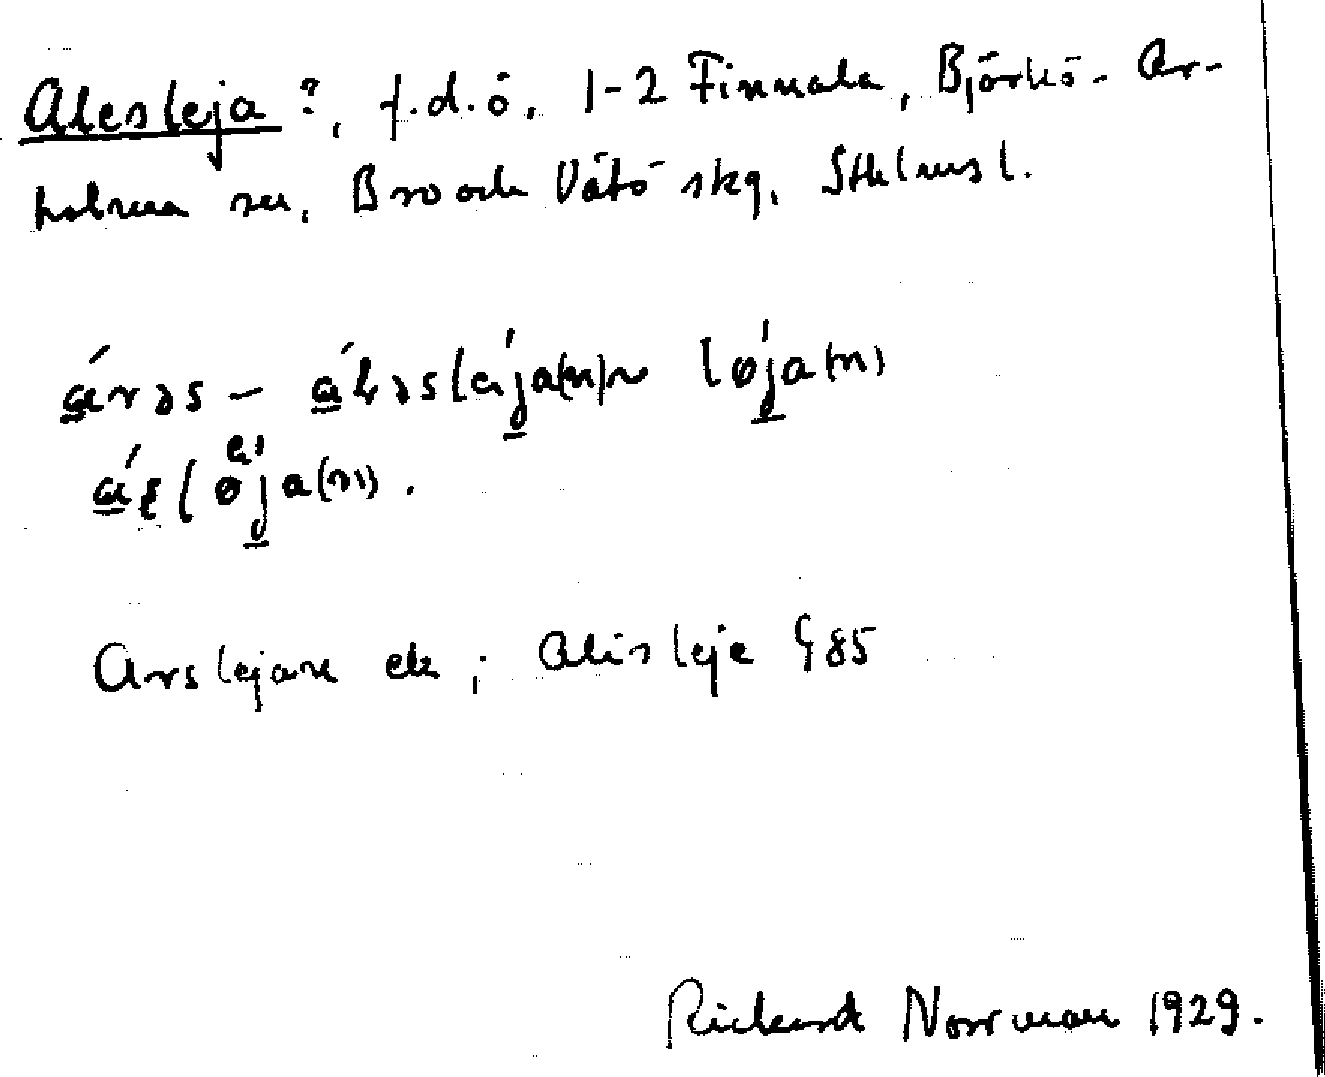 Alesleja ?, f.d. ö, 1-2 Finnala, Björkö-Ar-
holma sn, Bro och Vätö skg, Sthlms l.
á̱rəs – á̱ɫəsleja(n) ~ löja(n)
löja(n).
Arslejan ek ; Alisleje § 85
Rickard Norrman 1929.